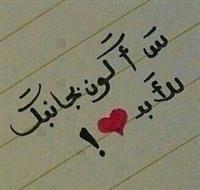 سَأكون بجانبكَ
للأبد !